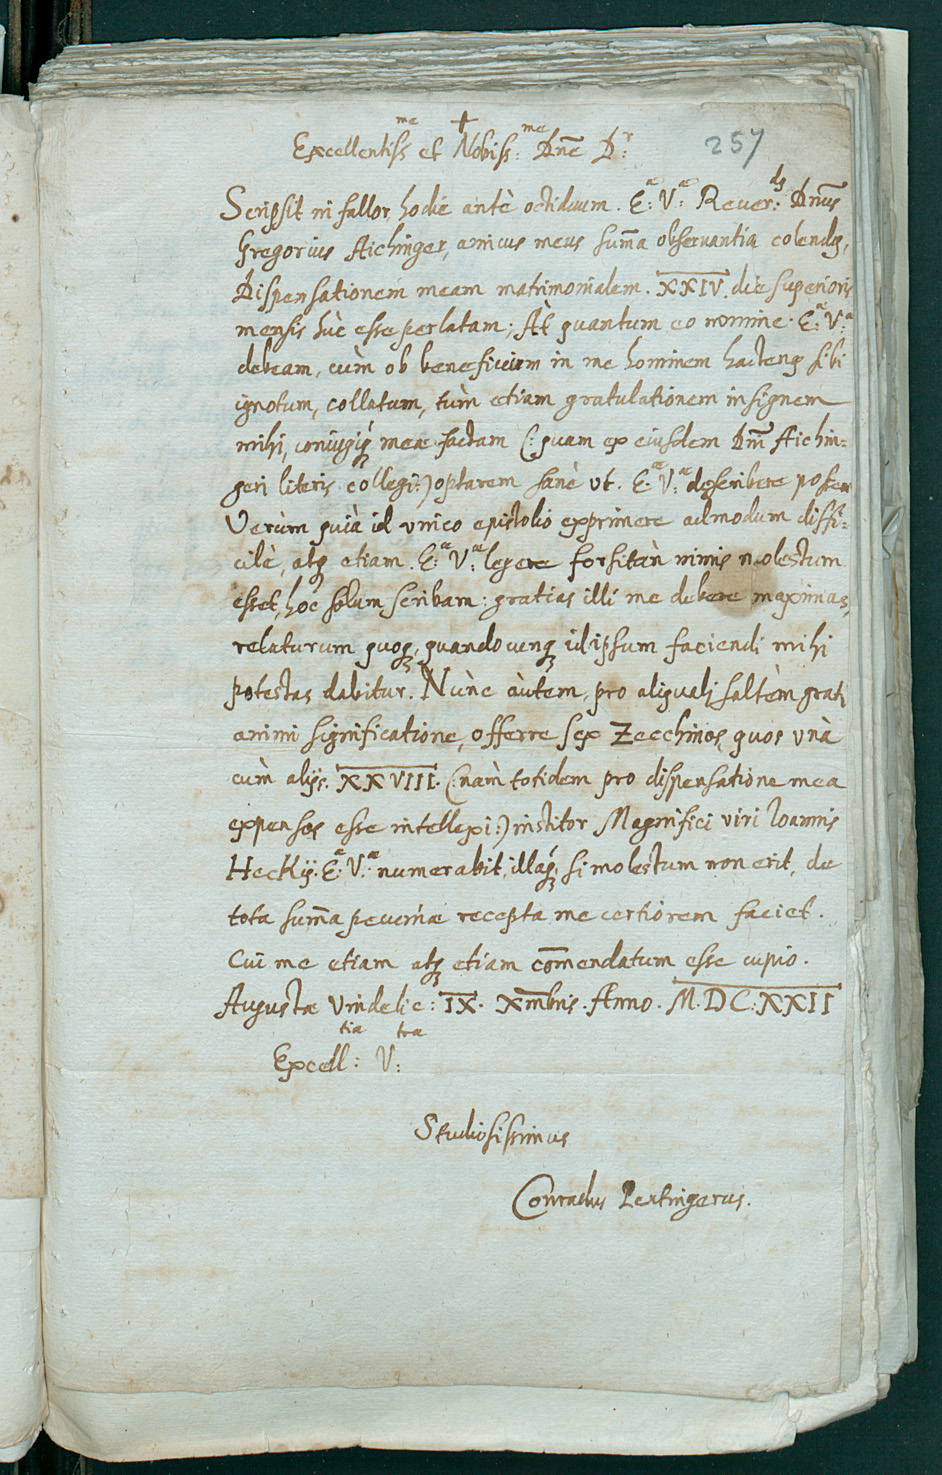 ✝
Excellentiss:me et Nobiss:me Dne̅ D:r
257
Scripsit ni fallor, hodie antè octiduum. E:æ V:æ Reuer:dꝯ Dn̅us
Gregorius Aichinger, amicus meus sum̅a obseruantia colendꝯ,
Dispensationem meam matrimonialem. XXIV. die superioris
mensis hùc esse perlatam; At quantum eo nomine. E:æ V:æ
debeam, cùm ob beneficium in me hominem hactenꝯ sibi
ignotum, collatum, tùm etiam gratulationem insignem
mihi, coniugiq́ꝫ meæ factam (: quam ex eiusdem Dn̅i Aichin=
geri literis collegi:) optarem sanè vt. E:æ V:æ describere possem
Verùm quià id vnico epistolio exprimere admodum diffi=
cilè, atqꝫ etiam. E:æ V:æ legere forsitàn nimis molestum
esset, hoc solum scribam: gratias illi me debere maximas,
relaturum quoqꝫ, quandocunqꝫ id ipsum faciendi mihi
potestas dabitur. Nùnc àutem, pro aliquali saltèm grati
animi significatione, offerre sex Zecchinos, quos vnà
cùm alijs. XXVIII. (: nàm totidem pro dispensatione mea
expensos esse intellexi:) institor Magnifici viri Ioannis
Heckij. E:æ V:æ numerabit, illaq́ꝫ, si molestum non erit, de
tota sum̅a pecuniæ recepta me certiorem faciet.
Cui me etiam atqꝫ etiam com̅endatum esse cupio.
Augustæ Vindelic: IX. Xm̅bris. Anno. M.DC.XXII
Excell:tia V:tra
Studiosissimus
Conradus Peutingerus.